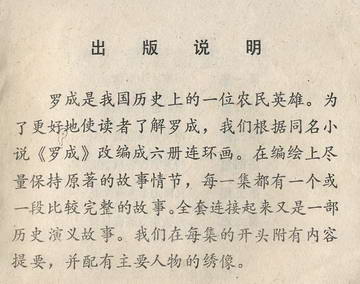 出版说明
罗成是我国历史上的一位农民英雄。为
了更好地使读者了解罗成，我们根据同名小
说《罗成》改编成六册连环画。在编绘上尽
量保持原著的故事情节，每一集都有一个或
一段比较完整的故事。全套连接起来又是一部
历史演义故事。我们在每集的开头附有内容
提要，并配有主要人物的绣像。